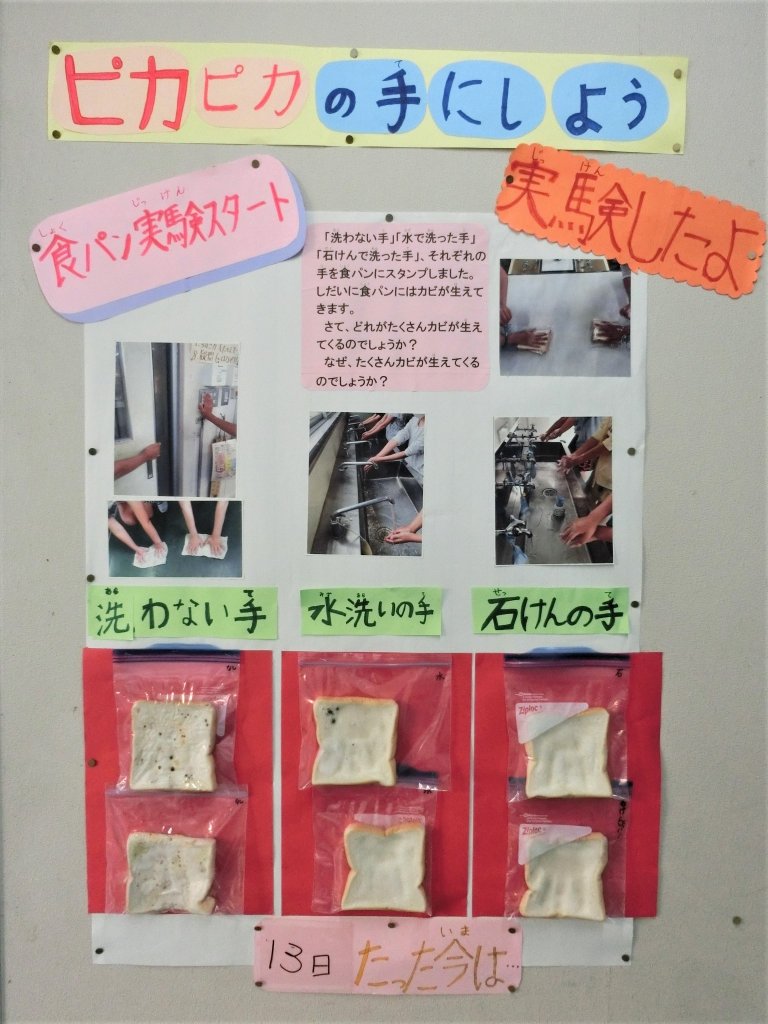 ピカピカの手にしよう
食パン実験スタート
実験したよ
「洗わない手」「水で洗った手」
「石けんで洗った手」、それぞれの
手を食パンにスタンプしました。
しだいに食パンにはカビが生えて
きます。
さて、どれがたくさんカビが生え
てくるのでしょうか？
なぜ、たくさんカビが生えてくる
のでしょうか？
洗わない手
水洗いの手
石けんの手
なし
水
石
Ziploc
なし
水
Ziploc
13日 たった今は…